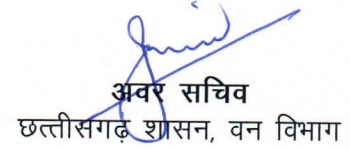 अवर सचिव
छत्तीसगढ़ शासन, वन विभाग